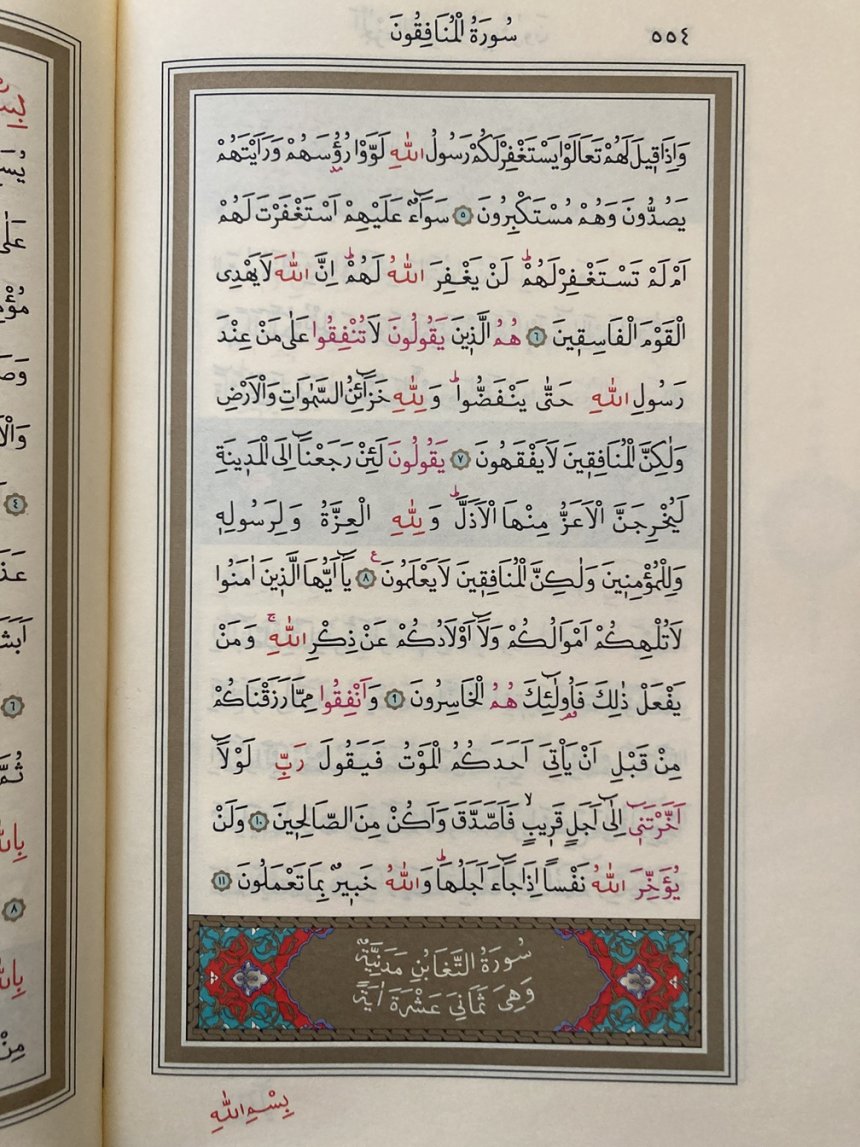 سُورَةُ الْمُنَافِقُونَ ٥٥٤
وَاِذَا قٖيلَ لَهُمْ تَعَالَوْا يَسْتَغْفِرْ لَكُمْ رَسُولُ اللّٰهِ لَوَّوْا رُؤُ۫سَهُمْ وَرَاَيْتَهُمْ
يَصُدُّونَ وَهُمْ مُسْتَكْبِرُونَ ﴿٥﴾ سَوَٓاءٌ عَلَيْهِمْ اَسْتَغْفَرْتَ لَهُمْ
اَمْ لَمْ تَسْتَغْفِرْ لَهُمْؕ لَنْ يَغْفِرَ اللّٰهُ لَهُمْؕ اِنَّ اللّٰهَ لَا يَهْدِى
الْقَوْمَ الْفَاسِقٖينَ ﴿٦﴾ هُمُ الَّذٖينَ يَقُولُونَ لَا تُنْفِقُوا عَلٰى مَنْ عِنْدَ
رَسُولِ اللّٰهِ حَتّٰى يَنْفَضُّواؕ وَلِلّٰهِ خَزَٓائِنُ السَّمٰوَاتِ وَالْاَرْضِ
وَلٰكِنَّ الْمُنَافِقٖينَ لَا يَفْقَهُونَ ﴿٧﴾ يَقُولُونَ لَئِنْ رَجَعْنَٓا اِلَى الْمَدٖينَةِ
لَيُخْرِجَنَّ الْاَعَزُّ مِنْهَا الْاَذَلَّؕ وَلِلّٰهِ الْعِزَّةُ وَلِرَسُولِهٖ
وَلِلْمُؤْمِنٖينَ وَلٰكِنَّ الْمُنَافِقٖينَ لَا يَعْلَمُونَ ﴿٨﴾ ع يَٓا اَيُّهَا الَّذٖينَ اٰمَنُوا
لَا تُلْهِكُمْ اَمْوَالُكُمْ وَلَٓا اَوْلَادُكُمْ عَنْ ذِكْرِ اللّٰهِۚ وَمَنْ
يَفْعَلْ ذٰلِكَ فَاُو۬لٰٓئِكَ هُمُ الْخَاسِرُونَ ﴿٩﴾ وَاَنْفِقُوا مِمَّا رَزَقْنَاكُمْ
مِنْ قَبْلِ اَنْ يَأْتِىَ اَحَدَكُمُ الْمَوْتُ فَيَقُولَ رَبِّ لَوْلَٓا
اَخَّرْتَنٖٓى اِلٰٓى اَجَلٍ قَرٖيبٍۙ فَاَصَّدَّقَ وَاَكُنْ مِنَ الصَّالِحٖينَ ﴿١٠﴾ وَلَنْ
يُؤَخِّرَ اللّٰهُ نَفْسًا اِذَا جَٓاءَ اَجَلُهَاؕ وَاللّٰهُ خَبٖيرٌ بِمَا تَعْمَلُونَ ﴿١١﴾
سُورَةُ التَّغَابُنِ مَدَنِيَّةٌ
وَهِىَ ثَمَانِىَ عَشْرَةَ اٰيَةً
بِسْمِ اللّٰهِ